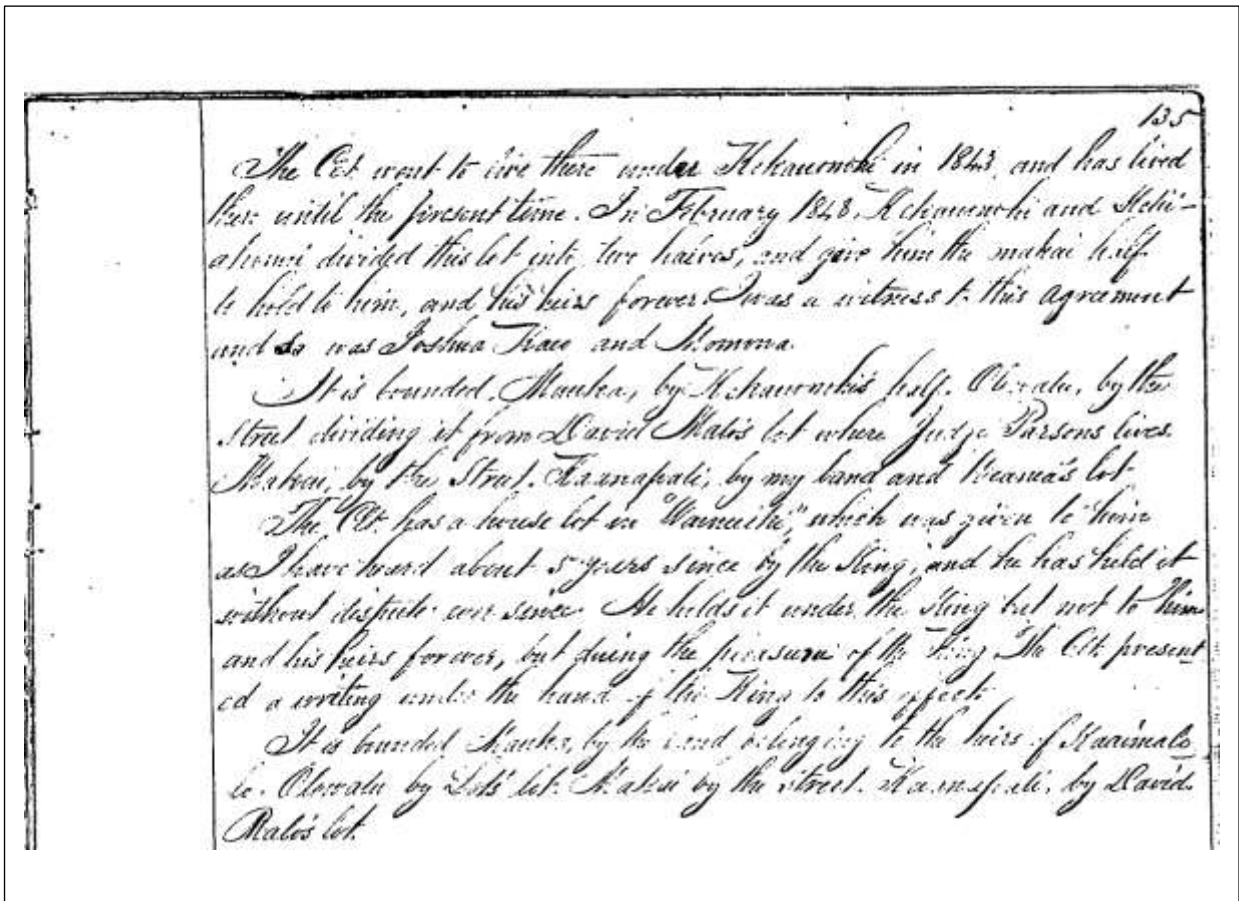 135
The Clt. went to live there under Kekauonohi in 1843, and has lived
there until the present time. In February 1848, Kekauonohi and Kelii-
ahonui divided this lot into two halves, and give him the makai half
to hold to him, and his heirs forever. I was a witness to this agreement
and so was Joshua Kaeo and Momona.
It is bounded, Mauka, by Kekauonohi's half. Olowalu, by the
Street dividing it from David Malo's lot where Judge Parsons lives.
Makai, by the Street. Kaanapali, by my land and lot
The Clt. has a house lot in "Wainee iki," which was given to him
as I have heard about 5 years since by the King, and he has held it
without dispute ever since. He holds it under the King but not to him
and his heirs forever, but during the pleasure of the King. The Clt. present
ed a writing under the hand of the King to this effect.
It is bounded Mauka, by the land belonging to the heirs of Kaaimalo
lo. Olowalu by lot. Makai by the street. Kaanapali, by David
Malo's lot.